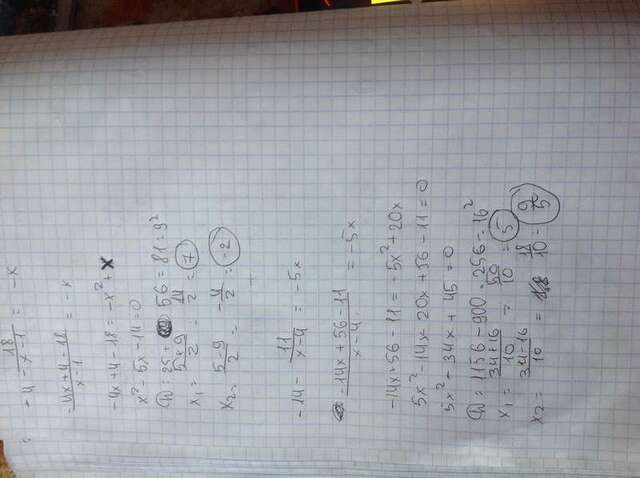 -4 - 18/(x-1) = -x
(-4x+4-18)/(x-1) = -x
-4x+4-18 = -x²+x
x²-5x-14=0
D = 25+56=81=9²
x₁ = (5+9)/2 = 14/2 = 7
x₂ = (5-9)/2 = -4/2 = -2
-14 - 11/(x-4) = -5x
(-14x+56-11)/(x-4) = -5x
-14x+56-11 = -5x²+20x
5x²-14x-20x+56-11=0
5x²-34x+45=0
D = 1156-900=256=16²
x₁ = (34+16)/10 = 50/10 = 5
x₂ = (34-16)/10 = 18/10 = 9/5